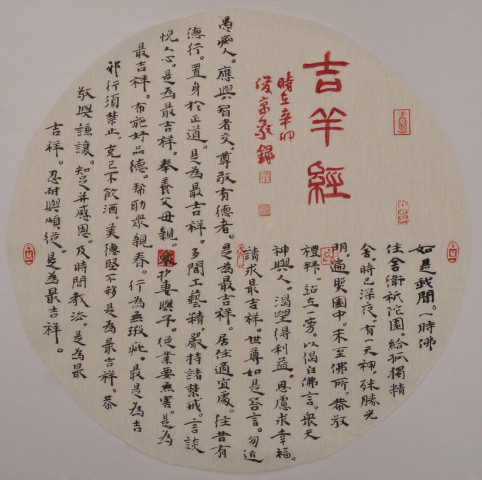 吉羊經
時在辛卯
敬錄
如是我聞。一時佛
住舍衛祇陀園。給孤獨精
舍。時已深夜。有一天神。殊勝光
明。遍照園中。来至佛所。恭敬
禮拜。站立一旁。以偈白佛言。眾天
神與人。渴望得利益。思慮求幸福。
請求最吉祥。世尊如是答言。勿近
愚癡人。應與智者交。尊敬有德者。是為最吉祥。居住適宜處。往昔有
德行。置身於正道。是為最吉祥。多聞工藝精。嚴持諸禁戒。言談
悅人心。是為最吉祥。奉養父母親。護妻與子。從業要無害。是為
最吉祥。布施好品德。幫助眾親眷。行為無瑕疵。最是為吉
邪行須禁止。克己不飲酒。美德堅不移。是為最吉祥。恭
敬與謙讓。知足并感恩。及時聞教法。是為最
吉祥。忍耐與順從。是為最吉祥。